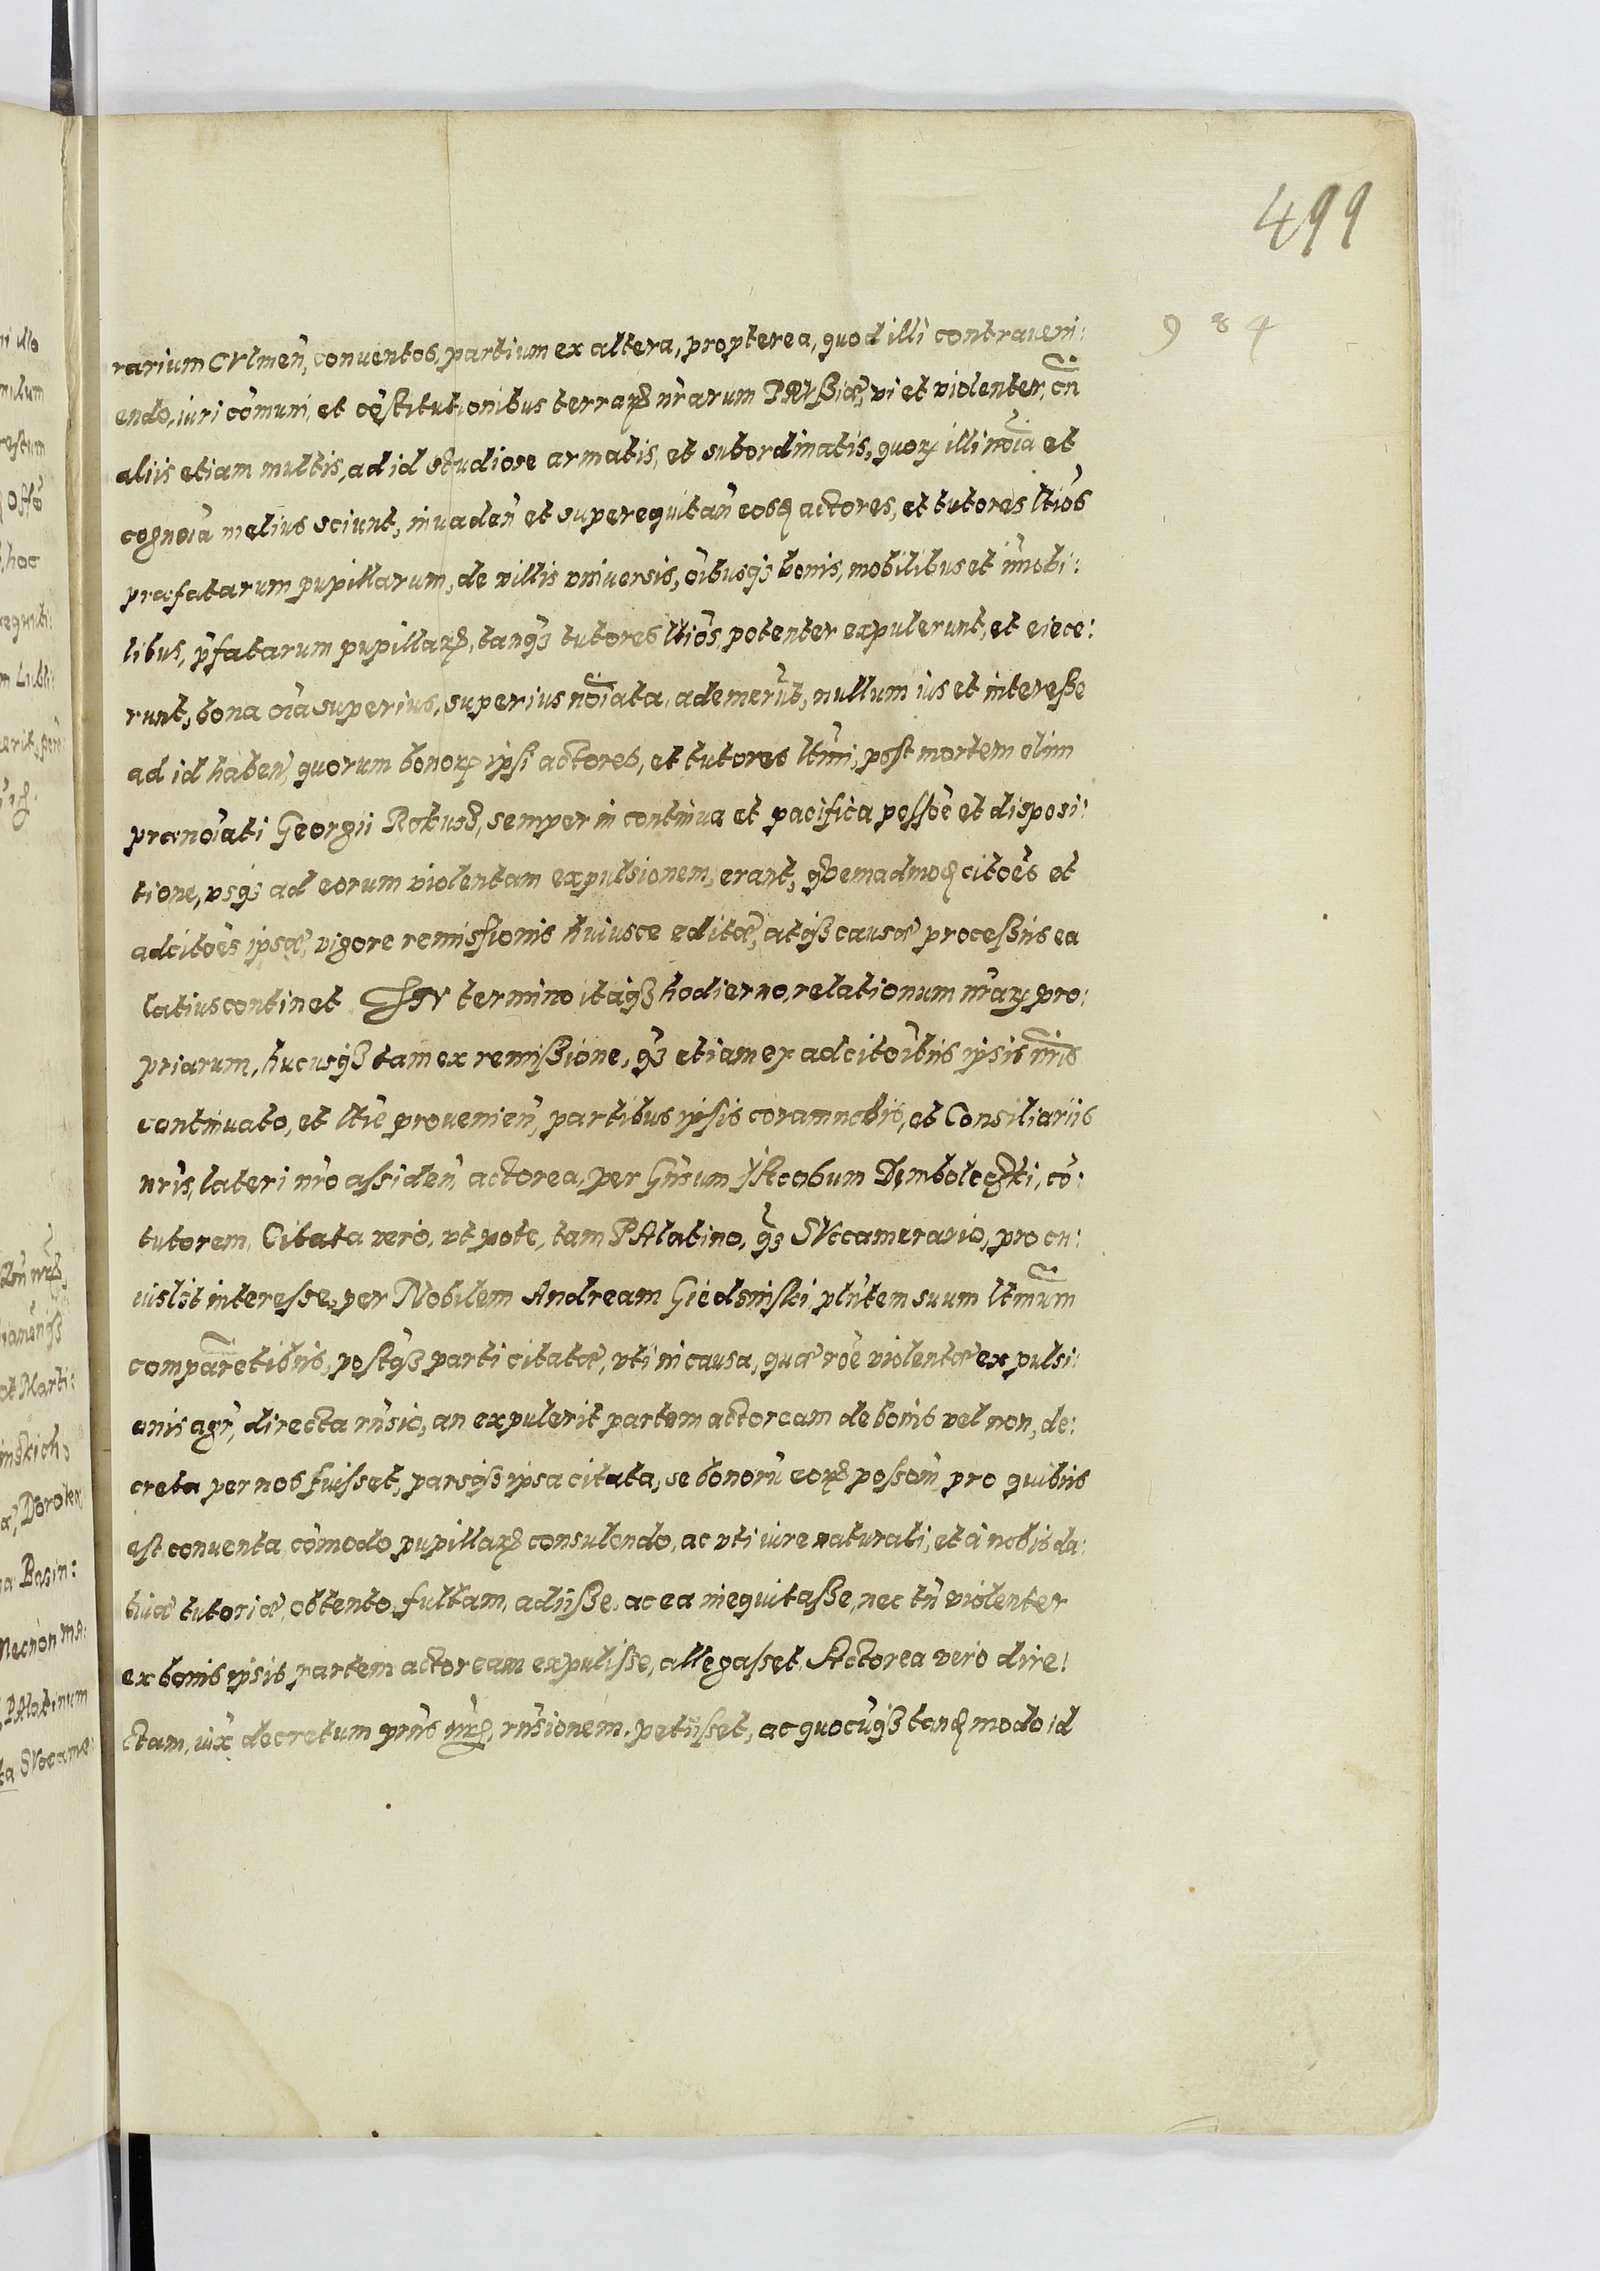 499
984
rarium CVlmeñ, conuentos, partium ex altera, propterea, quod illi contraueni:
endo, iuri cõmuni, et cõstitutionibus terraꝝ nr̃arum PRVßiæ, vi et violenter, cũ
aliis etiam multis, ad id studiose armatis, et subordinatis, quoꝝ illi noĩa et
cognoĩa melius sciunt, inuadeñ et superequitañ eosꝗ actores, et tutores ltĩos
præfatarum pupillarum, de villis vniuersis, oĩbusqꝫ bonis, mobilibus et im̃obi:
libus, p̃fatarum pupillaꝝ, tanqꝫ tutores ltĩos, potenter expulerunt, et eiece:
runt, bona oĩa superius, superius noĩata, ademerũt, nullum ius et intereße
ad id habeñ, quorum bonoꝝ ipsi actores, et tutores ltĩmi, post mortem olim
prænoĩati Georgii, semper in continua et pacifica poſſoẽ et disposi:
tione, vsqꝫ ad eorum violentam expulsionem, erant, quemadmodꝫ citoẽs et
adcitoẽs ipsæ, vigore remissionis huiusce editæ, atqꝫ causæ proceßus ea
latius continet IN termino itaqꝫ hodierno, relationum nr̃aꝝ pro:
priarum, hucusqꝫ tam ex remißione, qꝫ etiam ex adcitoĩbus ipsis nr̃is
continuato, et ltĩe prouenieñ, partibus ipsis coram nobis, et Consiliariis
nr̃is, lateri nr̃o assideñ, actorea, per Gñsum IAcobum, cõ:
tutorem, Citata vero, vt pote, tam PAlatino, qꝫ SVccamerario, pro cu:
iuslꝫ interesse, per Nobilem Andream, plñtem suum ltĩmum
comparẽtibus, postqꝫ parti citatæ, vti in causa, quæ roẽ violentæ expulsi:
onis agr̃, directa rñsio, an expulerit partem actoream de bonis vel non, de:
creta per nos fuisset, parsqꝫ ipsa citata, se bonorũ eoꝝ poßoẽm, pro quibus
est conuenta, cõmodo pupillaꝝ consulendo, ac vti iure naturali, et à nobis da:
tiuæ tutoriæ, obtento, fultam, adiiße, ac ea inequitaße, nec tñ violenter
ex bonis ipsis, partem actoream expulisse, allegasset, Actorea vero dire:
ctam, iux̃ decretum prius nr̃m, rñsionem, petiisset, ac quocũqꝫ tandꝫ modo id